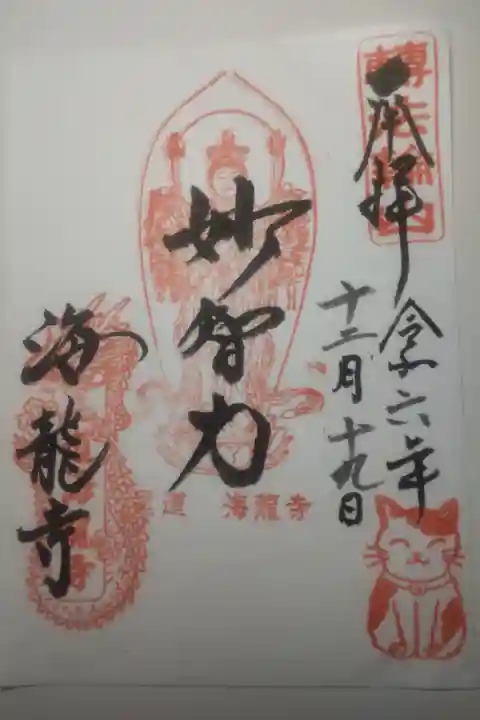 奉拝
令和六年
十二月十九日
妙智力
海龍寺
尾道 海龍寺